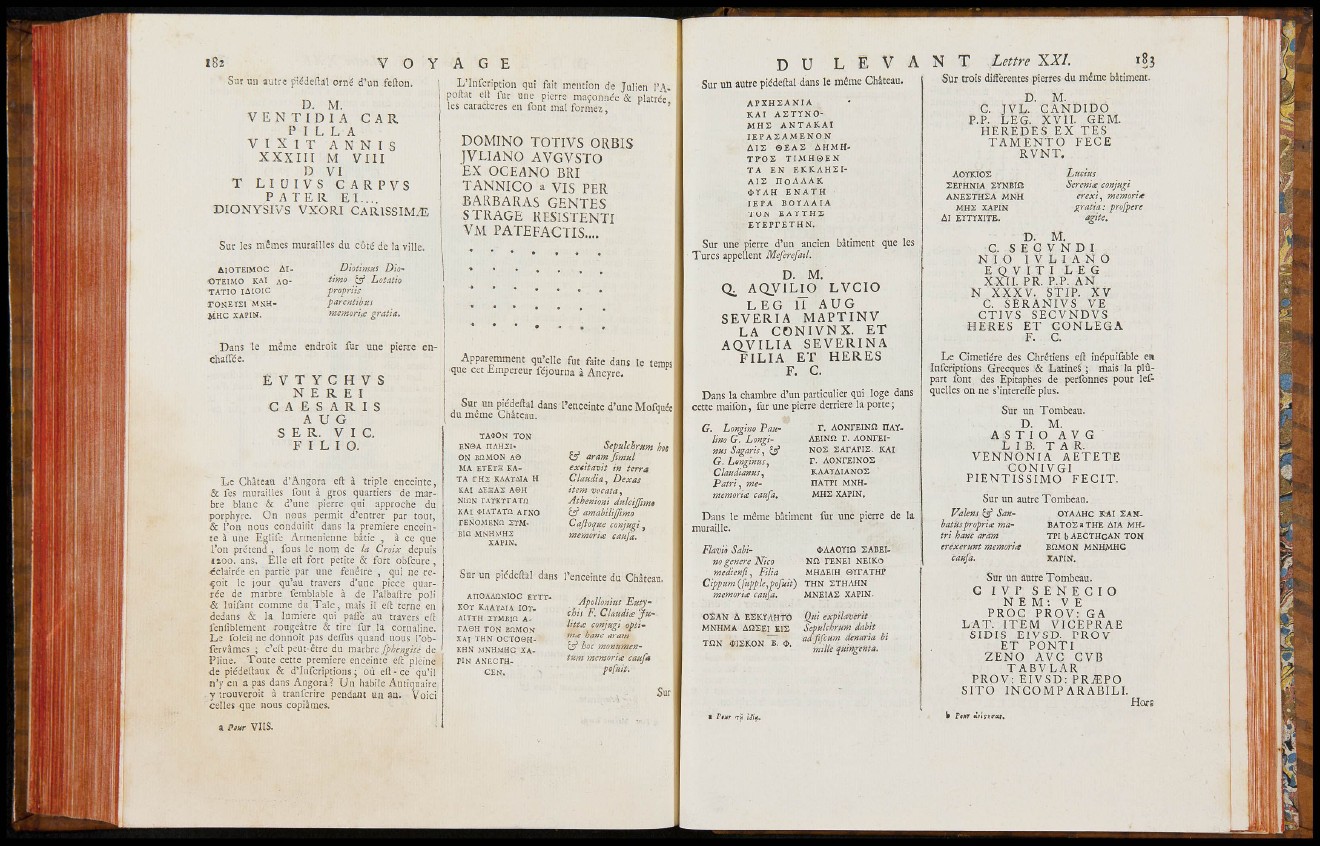 182 VOYAGE
Sur un autre piédestal orné d'un feston.
D. M.
VENTIDIA CAR
PILLA
VIXIT ANNIS
XXXIII M VIII
D VI
T LIUIVS CARPVS
PATER EI....
DIONYSIVS VXORI CARISSIMÆ
Sur les mêmes murailles du côté de la ville.
ΔΙΟΤΕΙΜΟC ΔΙ-
ΟΤΕΙΜΟ ΚΑΙ ΛΟ-
ΤΑΤΙΟ ΙΔΙΟΙC
ΓΟΝΕΙΣΙ ΜΝΗ-
ΜΗC ΧΑΡΙΝ.
Diotimus Dio-
timo & Lotatio
propriis
parentibus
memoriæ gratia.
Dans le même endroit sur une pierre en-
chassée.
EVTYCHVS
NEREI
CAESARIS
AUG
SER. VIC.
FILIO.
Le Château d'Angora est à triple enceinte,
& ses murailles sont à gros quartiers de mar-
bre blanc & d'une pierre qui approche du
porphyre. On nous permit d'entrer par tout,
& l'on nous conduisit dans la premiere encein-
te à une Eglise Armenienne bâtie, à ce que
l'on prétend, sous le nom de la Croix depuis
1200. ans. Elle est fort petite & fort obscure,
éclairée en partie par une fenêtre, qui ne re-
çoit le jour qu'au travers d'une piece quar-
rée de marbre semblable à de l'albastre poli
& luisant comme du Talc, mais il est terne en
dedans & la lumiere qui passe au travers est
sensiblement rougeâtre & tire sur la cornaline.
Le soleil ne donnoit pas dessus quand nous l'ob-
servâmes ; c'est peut-être du marbre sphengite de
Pline. Toute cette premiere enceinte est pleine
de piédestaux & d'Inscriptions; où est-ce qu'il
n'y en a pas dans Angora? Un habile Antiquaire
y trouveroit à transcrire pendant un an. Voici
celles que nous copiâmes.
a Pour VIIS.
L'Inscription qui fait mention de Julien l'A-
postat est sur une pierre maçonnée & platrée,
les caracteres en sont mal formez,
DOMINO TOTIVS ORBIS
JVLIANO AVGVSTO
EX OCEANO BRI
TANNICO a VIS PER
BARBARAS GENTES
STRAGE RESISTENTI
VM PATEFACTIS....
Apparemment qu'elle fut faite dans le temps
que cet Empereur séjourna à Ancyre.
Sur un piédestal dans l'enceinte d'une Mosquée
du même Château.
ΤΑΦΟΝ ΤΟΝ
ΕΝΘΑ ΠΛΗΣΙ-
ΟΝ ΒΩΜΟΝ ΑΘ
ΜΑ ΕΤΕΥΞ ΕΛ-
ΤΑ ΓΗΣ ΚΛΑΥΔΙΑ Η
ΚΑΙ ΔΕΞΑΣ ΑΘΗ
ΝΙΩΝ ΓΛΥΚΥΤΑΤΩ
ΚΑΙ ΦΙΛΤΑΤΩ ΑΓΝΟ
ΓΕΝΟΜΕΝΩ ΣΥΜ-
ΒΙΩ ΜΝΗΜΗΣ
ΧΑΡΙΝ.
Sepulchrum hoc
& aram simul
excitavit in terra
Claudia, Dexas
item vocata,
Athenioni dulcissimo
& amabilissimo
Castoque conjugi,
memoriæ causa.
Sur un piédestal dans l'enceinte du Château.
ΑΠΟΛΛΩΝΙΟC ΕΥΤΥ-
ΧΟΥ ΚΛΑΥΔΙΑ ΙΟΥ-
ΛΙΤΤΗ ΣΥΜΒΙΩ Α-
ΓΑΘΗ ΤΟΝ ΒΩΜΟΝ
ΚΑΙ ΤΗΝ ΟCΤΟΘΗ-
ΚΗΝ ΜΝΗΜΗC ΧΑ-
ΡΙΝ ΑΝΕCΤΗ-
CΕΝ.
Apollonius Euty-
chii F. Claudiæ Ju-
littæ conjugi opti-
mæ hanc aram
& hoc monumen-
tum memoriæ causa
posuit.
Sur
DU LEVANT Lettre XXI. 183
Sur un autre piédestal dans le même Château.
ΑΡΧΗΣΑΝΙΑ
ΚΑΙ ΑΣΤΥΝΟ-
ΜΗΣ ΑΝΤΑΚΑΙ
ΙΕΡΑΣΑΜΕΝΟΝ
ΔΙΣ ΘΕΑΣ ΔΗΜΗ-
ΤΡΟΣ ΤΙΜΗΘΕΝ
ΤΑ ΕΝ ΕΚΚΛΗΣΙ-
ΑΙΣ ΠΟΛΛΑΚ
ΦΥΛΗ ΕΝΑΤΗ
ΙΕΡΑ ΒΟΥΛΑΙΑ
ΤΟΝ ΕΑΥΤΗΣ
ΕΥΕΡΓΕΤΗΝ.
Sur une pierre d'un ancien bâtiment que les
Turcs appellent Mescresail.
D. M.
Q. AQVILIO LVCIO
LEG II AUG
SEVERIA MAPTINV
LA CONIVNX. ET
AQVILIA SEVERINA
FILIA ET HERES
F. C.
Dans la chambre d'un particulier qui loge dans
cette maison, sur une pierre derriere la porte;
G. Longino Pau-
lino G. Longi-
nus Sagaris, &
G. Longinus,
Claudianus,
Patri, me-
memoriæ causa.
Γ. ΛΟΝΓΕΙΝΩ ΠΑΥ-
ΛΕΙΝΩ Γ. ΛΟΝΓΕΙ-
ΝΟΣ ΣΑΓΑΡΙΣ. ΚΑΙ
Γ. ΛΟΝΓΕΙΝΟΣ
ΚΛΑΥΔΙΑΝΟΣ
ΠΑΤΡΙ ΜΝΗ-
ΜΗΣ ΧΑΡΙΝ.
Dans le même bâtiment sur une pierre de la
muraille.
Flavio Sabi-
no genere Nico
mediensi, Filia
Cippum (supple, posuit)
memoriæ causa.
ΦΛΑΟΥΙΩ ΣΑΒΕΙ-
ΝΩ ΓΕΝΕΙ ΝΕΙΚΟ
ΜΗΔΕΙΗ ΘΥΓΑΤΗΡ
ΤΗΝ ΣΤΗΛΗΝ
ΜΝΕΙΑΣ ΧΑΡΙΝ.
ΟΣΑΝ Δ ΕΣΚΥΛΗΤΟ
ΜΝΗΜΑ ΔΩΣΕΙ ΕΙΣ
ΤΩΝ ΦΙΣΚΟΝ Β. Φ.
Qui expilaverit
Sepulchrum dabit
ad fiscum denaria bi
mille quingenta.
Sur trois differentes pierres du même bâtiment.
D. M.
C. JVL. CANDIDO
P.P. LEG. XVII. GEM.
HEREDES EX TES
TAMENTO FECE
RVNT.
ΛΟΥΚΙΟΣ
ΣΕΡΗΝΙΑ ΣΥΝΒΙΩ
ΑΝΕΣΤΗΣΑ ΜΝΗ
ΜΗΣ ΧΑΡΙΝ
ΔΙ ΕΥΤΥΧΙΤΕ.
Lucius
Sereniæ conjugi
erexi, memoriæ
gratia: prospere
agite.
D. M.
C. SECVNDI
NIO IVLIANO
EQVITI LEG
XXII. PR. P.P. AN
N XXXV. STIP. XV
C. SERANIVS VE
CTIVS SECVNDVS
HERES ET CONLEGA
F. C.
Le Cimetiére des Chrétiens est inépuisable en
Inscriptions Grecques & Latines ; mais la plû-
part sont des Epitaphes de personnes pour les-
quelles on ne s'interesse plus.
Sur un Tombeau.
D. M.
ASTIO AVG
LIB. TAR.
VENNONIA AETETE
CONIVGI
PIENTISSIMO FECIT.
Sur un autre Tombeau.
Valens & San-
batus propriæ ma-
tri hanc aram
erexerunt memoriæ
causa.
ΟΥΑΛΗC ΚΑΙ ΣΑΝ-
ΒΑΤΟΣ a ΤΗΕ ΔΙΑ ΜΗ-
ΤΡΙ b ΑΕCΤΗCΑΝ ΤΟΝ
ΒΩΜΟΝ ΜΝΗΜΗC
ΧΑΡΙΝ.
Sur un autre Tombeau.
C IVP SENECIO
NEM: VE
PROC PROV: GA
LAT. ITEM VICEPRAE
SIDIS EIVSD. PROV
ET PONTI
ZENO AVC CVB
TABVLAR
PROV: EIVSD: PRÆPO
SITO INCOMPARABILI.
Hors
a Pour τῇ ἰδίᾳ.
b Pour